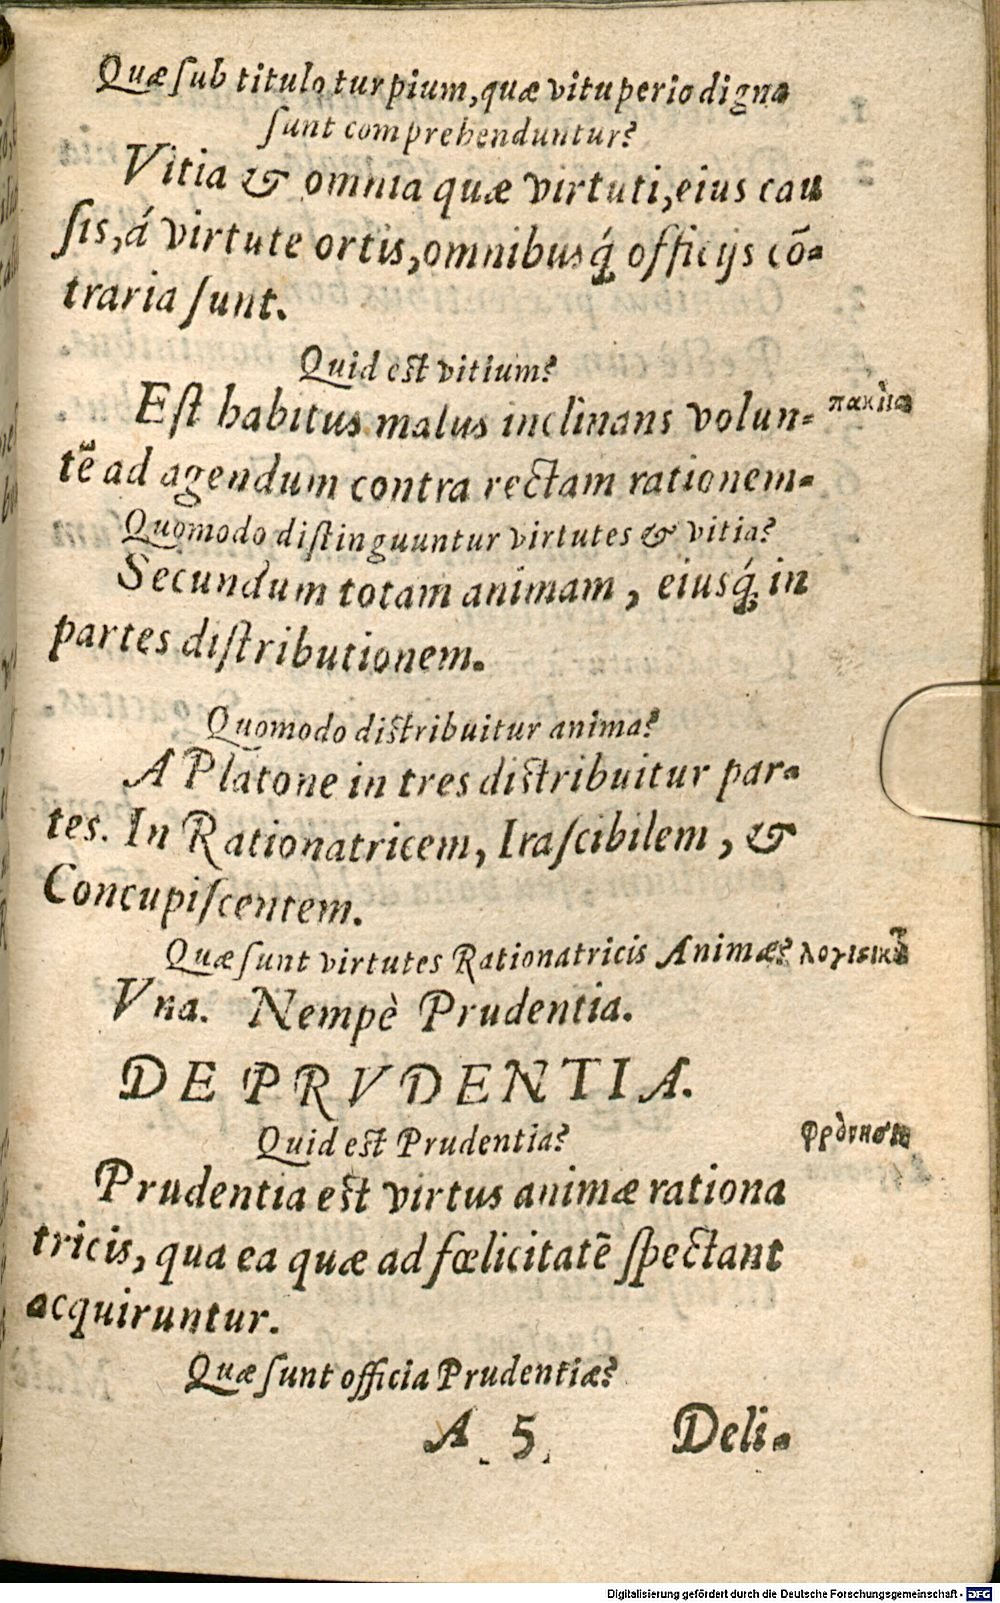 Quæ ſub titulo turpium, quæ vituperio digna
ſunt comprehenduntur?
Vitia & omnia quæ virtuti, eius cau
ſis, á virtute ortis, omnibusq́; officijs cō-
traria ſunt.
Quid est vitium?
Eſt habitus malus inclinans volun-
tẽ ad agendum contra rectam rationem-
Quomodo diſtinguuntur virtutes & vitia?
Secundum totam animam, eiusq́; in
partes diſtributionem.
Quomodo distribuitur anima?
A Platone in tres distribuitur par-
tes. In Rationatricem, Iraſcibilem, &
Concupiſcentem.
Quæ ſunt virtutes Rationatricis Animæ?
Vna. Nempè Prudentia.
DE PRVDENTIA.
Quid est Prudentia?
Prudentia est virtus animæ rationa
tricis, qua ea quæ ad fœlicitatē ſpectant
acquiruntur.
Quæ ſunt officia Prudentiæ?
A 5 Deli-
Digitalisierung gefördert durch die Deutsche Forschungsgemeinschaft - DFG